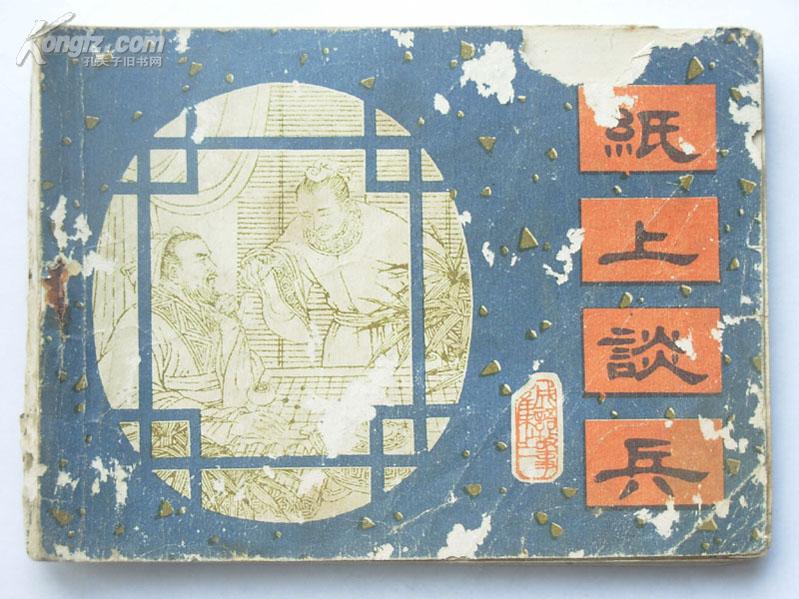 Kongfz.com
孔夫子旧书网
紙
上
談
兵
成語故事
集之二